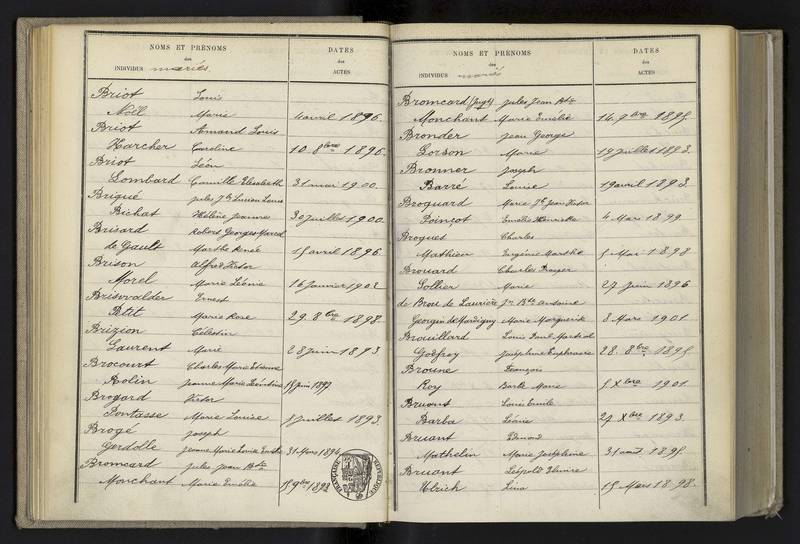 NOMS ET PRÉNOMS
des
INDIVIDUS mariés
DATES
des
ACTES
Briot Louis
Noël Marie 4 avril 1896.
Briot Amand Louis
Harcher Caroline 10 8bre 1896.
Briot Léon
Lombard Camille Elisabeth 31 mai 1900.
Briqué Jules Jh Lucien Louis
Bichat Hélène Jeanne 30 juillet 1900.
Brisard Robert Georges Marcel
de Gault Marthe Renée 15 avril 1896.
Brison Alfred Victor
Morel Marie Léonie 16 Janvier 1902
Ernest
Petit Marie Rose 29. 8bre 1898.
Brizion Célestin
Laurent Marie 28 juin 1893
Brocourt Charles Marie Etienne
Aolin Jeanne Marie Léontine
Brogard Victor
Pontasse Marie Louise juillet 1893.
Brogé Joseph
Gerdolle Jeanne Marie Louise 31 Mars 1896
Bromcard Jules Jean Bte
Monchant Marie Emélie 15 9bre
NOMS ET PRÉNOMS
des
INDIVIDUS mariés
DATES
des
ACTES
Bromcard Jules Jean Bte
Monchant Marie Emélie 14. 9bre 1895.
Bronder Jean George
Lorson Marie 19 juillet 1893.
Bronner Joseph
Barré Louise 19 avril 1893.
Broquard Marie Jh Jean Victor
Poinçot Emélie Henriette 4 Mars 1899
Brogues Charles
Mathieu Virginie Marthe 5 Mai 1898
Brouard Charles
Sollier Marie 27 juin 1896
de Brou de Laurière Jn Bte Antoine
Georgin de Mardigny Marie Marguerite 8 Mars 1901
Brouillard Louis Paul Martial
Godfroy Joséphine Euphrasie 28. 8bre 1895
Broune François
Roy Barbe Marie 5 Xbre 1901
Bruant Louis Emile
Barba Léonie 27 Xbre 1893.
Bruant Edmond
Mathelin Marie Joséphine 31 août 1895.
Bruant Léopold
Ulrich Lina 15 Mars 1898.